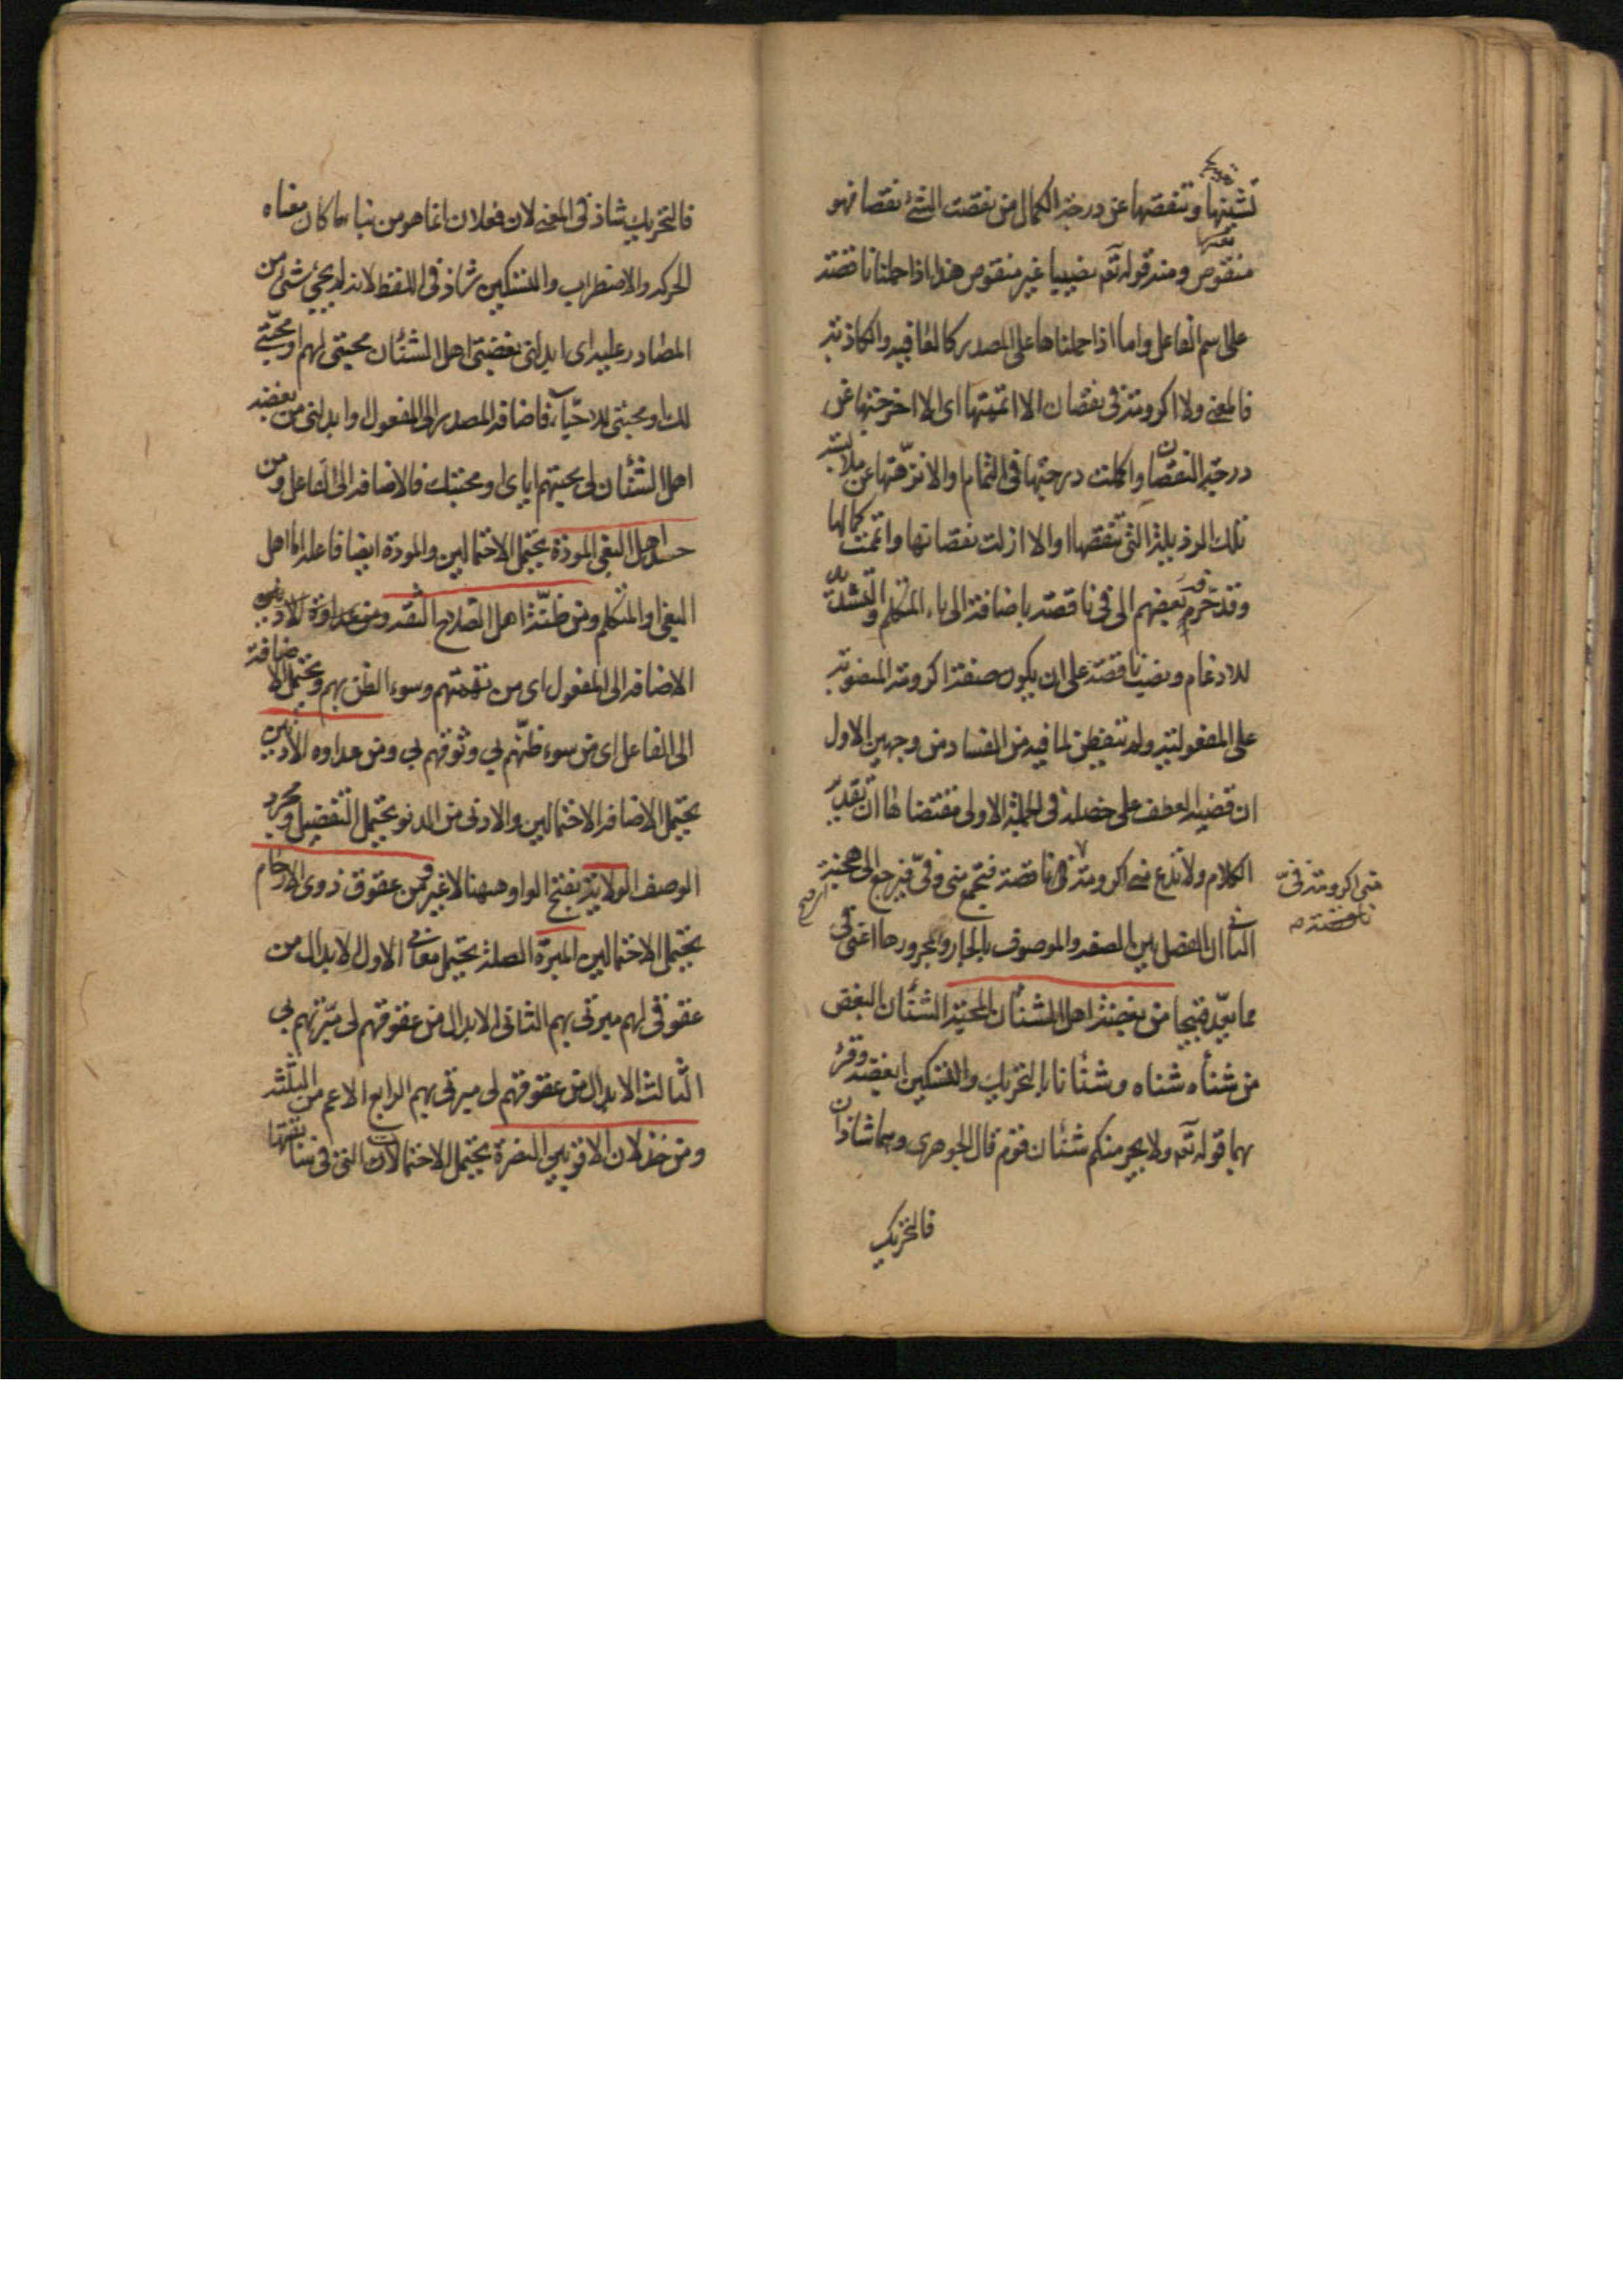 تشينها وتنقصها عن درجة الكمال من نقصت الشئ نقصا فهو
منقوص ومنه قوله تع نصيبا غير منقوص هذا اذا حملنا ناقصة
على اسم الفاعل واما اذا حملناها على المصدر كالعافيه والكاذبة
فالمعنى ولا اكرومة فى نقصان الا اتممتها اى الا اخرجتها عن
درجة النقصان واكملت درجتها فى التمام والا نزهتها عن ملابسة
تلك الرذيلة التى تنقصها او الا ازلت نقصانها واتممت كمالها
وقد حرفه بعضهم الى فى ناقصة باضافة الى ياء المتكلم والتشديد
للادغام ونصب ناقصة على ان يكون صفة اكرومة المنصوبة
على المفعولية ولم يتفطن لما فيه من الفساد من وجهين الاول
ان قضية العطف على خصلة فى الجملة الاولى مقتضاها ان تقدير
الكلام ولا تدع منى اكرومة فى ناقصة فتجمع منى وفى فيرجع الى هجنة
منى اكرومة فى
ناقصة صح
الثانى ان الفصل بين الصفة والموصوف بالجار ومجرورها اعنى فى
مما يعد قبيحا من بغضة اهل الشنئان المحبة الشنئان البغض
من شنأه شناه وشنئانا بالتحريك والتسكين ابغضه وقرئ
بهما قوله تع ولا يجرمنكم شنئان قوم قال الجوهرى وهما شاذان
فالتحريك
فالتحريك شاذ فى المعنى لان فعلان انما هو من بناء ما كان معناه
الحركه والاضطراب والتسكين شاذ فى اللفظ لانه لم يجئ شئ من
المصادر عليه اى ابدلنى بغضتى اهل الشنئان محبتى لهم او محبتى
لك او محبتى للاحياء فاضافه المصدر الى المفعول او ابدلنى من بغضه
اهل الشنئان لى محبتهم اياى او محبتك فالاضافه الى الفاعل ومن
حسد اهل البغى المودة يحتمل الاحتمالين والمودة ايضا فاعلها اما اهل
البغى او المتكلم ومن ظنة اهل الصلاح الثقة ومن عداوة الادنين
الاضافه الى المفعول اى من تهمتهم وسوء الظن بهم ويحتمل الاضافة
الى الفاعل اى من سوء ظنهم بى وثوقهم بى ومن عداوه الادنين
يحتمل الاضافه الاحتمالين والادنى من الدنو يحتمل التفضيل ومجرد
الوصف الولاية بفتح الواو وههنا لا غير ومن عقوق ذوى الارحام
يحتمل الاحتمالين المبرة الصلة يحتمل معانى الاول الابدال من
عقوقى لهم مبرتى بهم الثانى الابدال من عقوقهم لى مبرتهم بى
الثالث الابدال من عقوقهم لى مبرتى بهم الرابع الاعم من الثلثة
ومن خذلان الاقربين النصرة يحتمل الاحتمالات التى فى